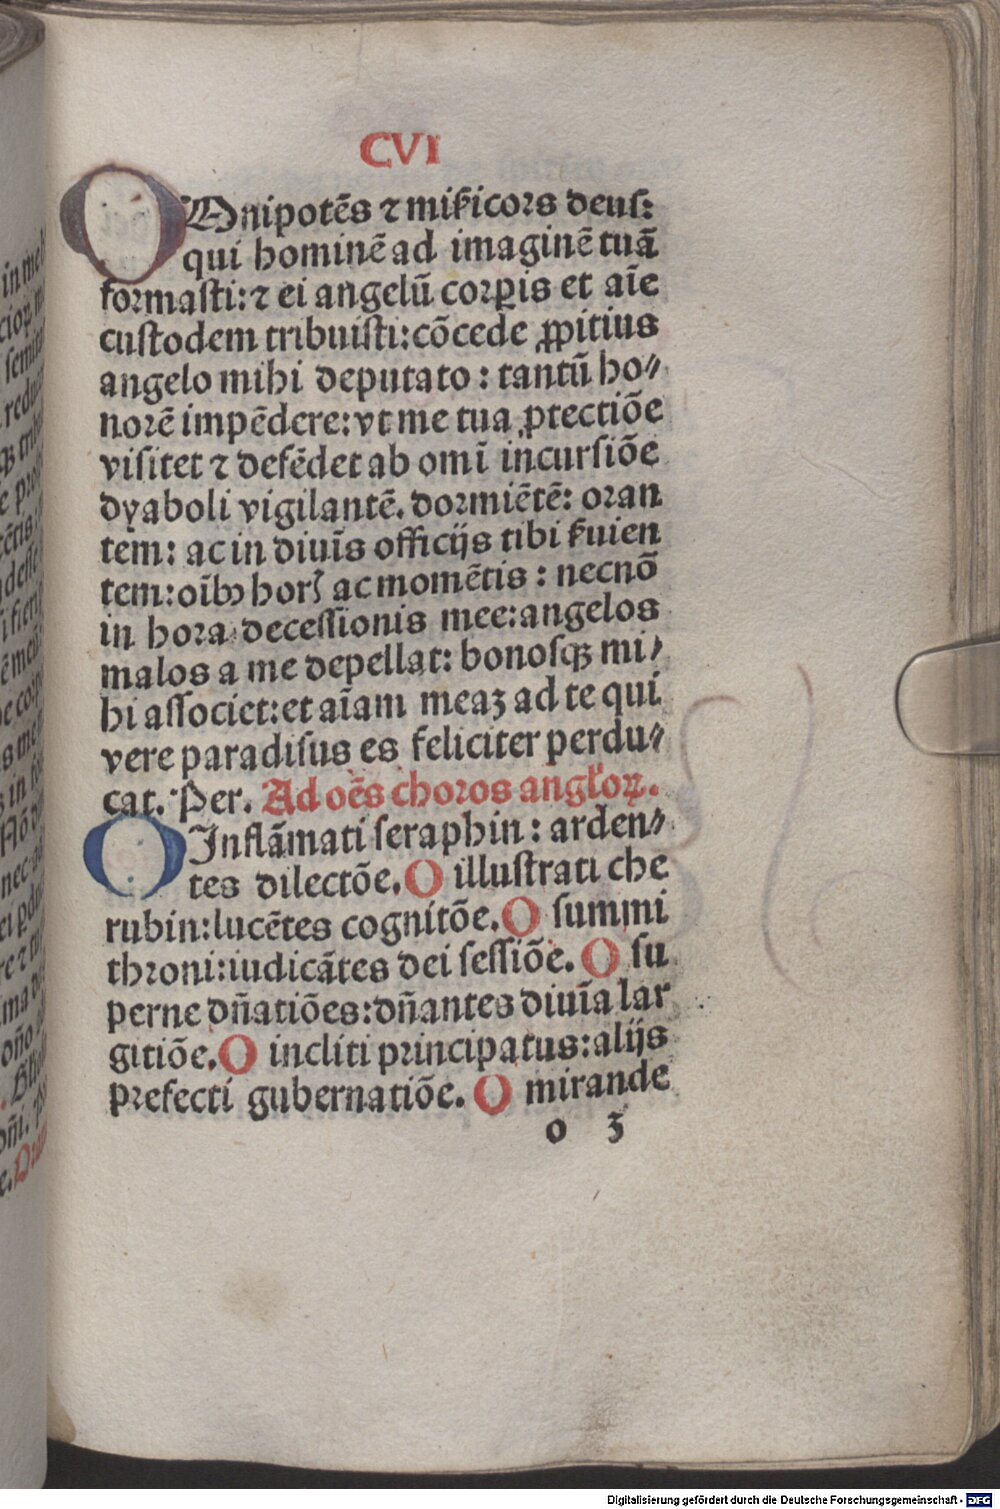 CVI
OMnipotēs ⁊ miẜicors deus:
qui hominē ad imaginē tuā
formasti: ⁊ ei angelū corꝑis et aīe
custodem tribuisti: cōcede ꝓpitius
angelo mihi deputato: tantū ho⸗
norē impēdere: vt me tua ꝓtectiōe
visitet ⁊ defēdet ab omī incursiōe
dyaboli vigilantē. dormiētē: oran
tem: ac in diuīs officijs tibi ẜuien
tem: oībꝰ horꝭ ac momētis: necnō
in hora decessionis mee: angelos
malos a me depellat: bonosqꝫ mi⸗
hi associet: et aīam meaꝫ ad te qui
vere paradisus es feliciter perdu⸗
cat. Per. Ad oēs choros angłoꝝ.
O Inflāmati seraphin: arden⸗
tes dilectōe. O illustrati che
rubin: lucētes cognitōe. O summi
throni: iudicātes dei sessiōe. O su
perne dn̄atiōes: dn̄antes diuīa lar
gitiōe. O incliti principatus: alijs
prefecti gubernatiōe. O mirande
o 3
Digitalisierung gefördert durch die Deutsche Forschungsgemeinschaft - DFG